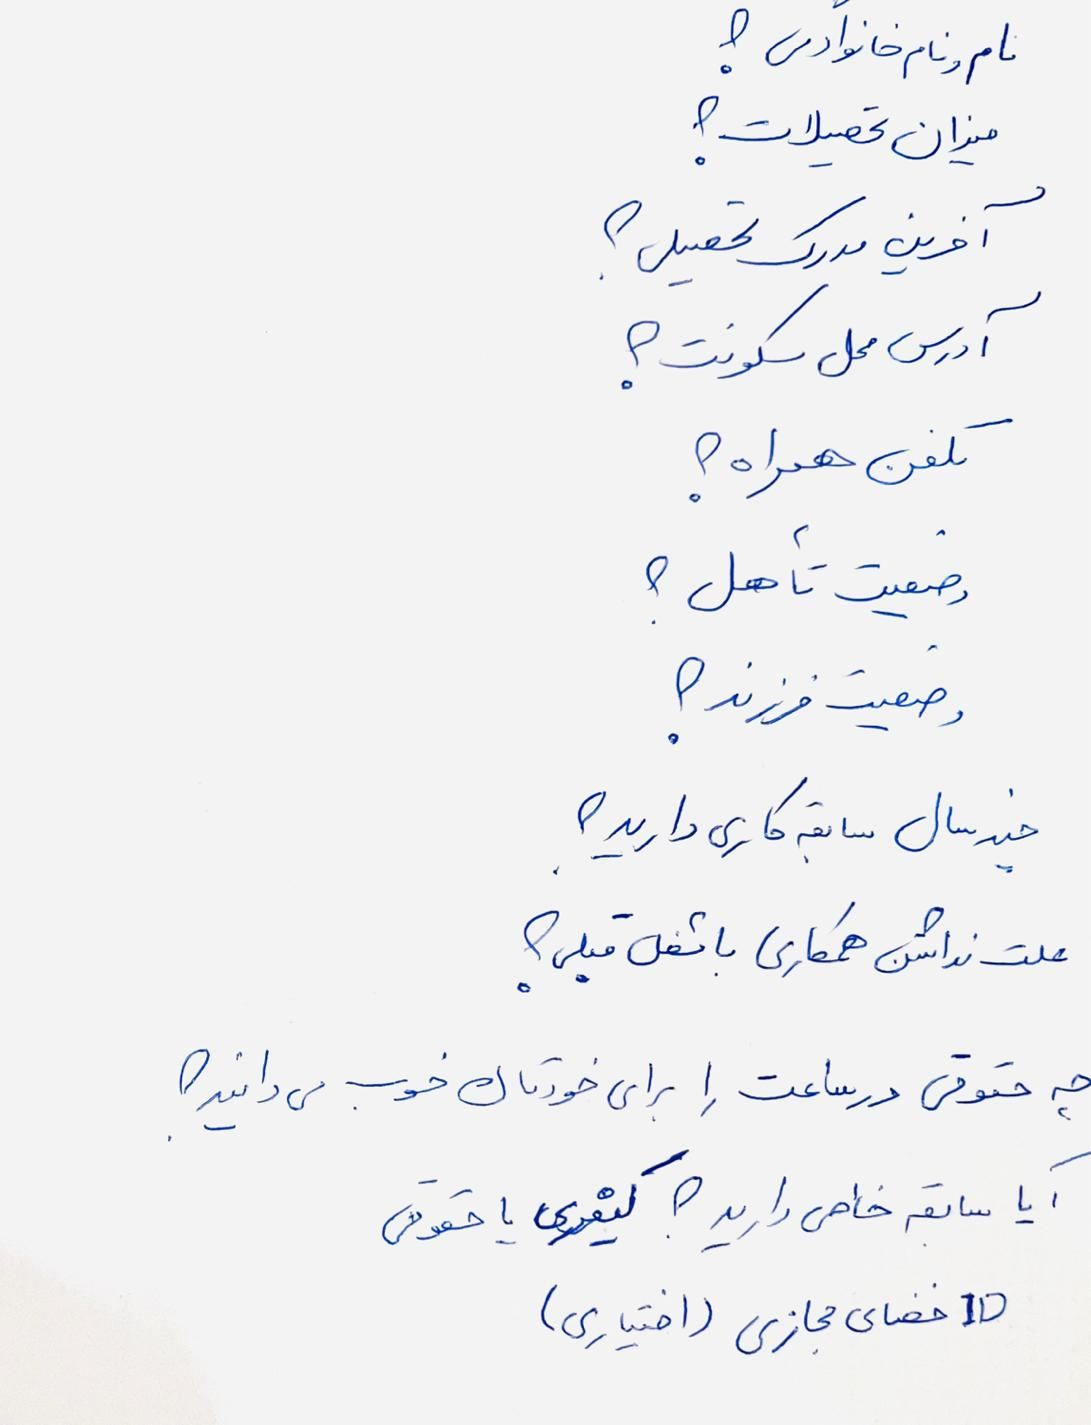 نام و نام خانوادگی ؟
میزان تحصیلات ؟
آخرین مدرک تحصیلی ؟
آدرس محل سکونت ؟
تلفن همراه ؟
وضعیت تأهل ؟
وضعیت فرزند ؟
چند سال سابقه کاری دارید ؟
علت نداشتن همکاری با شغل قبلی ؟
چه حقوقی در ساعت را برای خودتان خوب می دانید ؟
آیا سابقه خاصی دارید ؟ کیفری یا حقوقی
ID فضای مجازی (اختیاری)